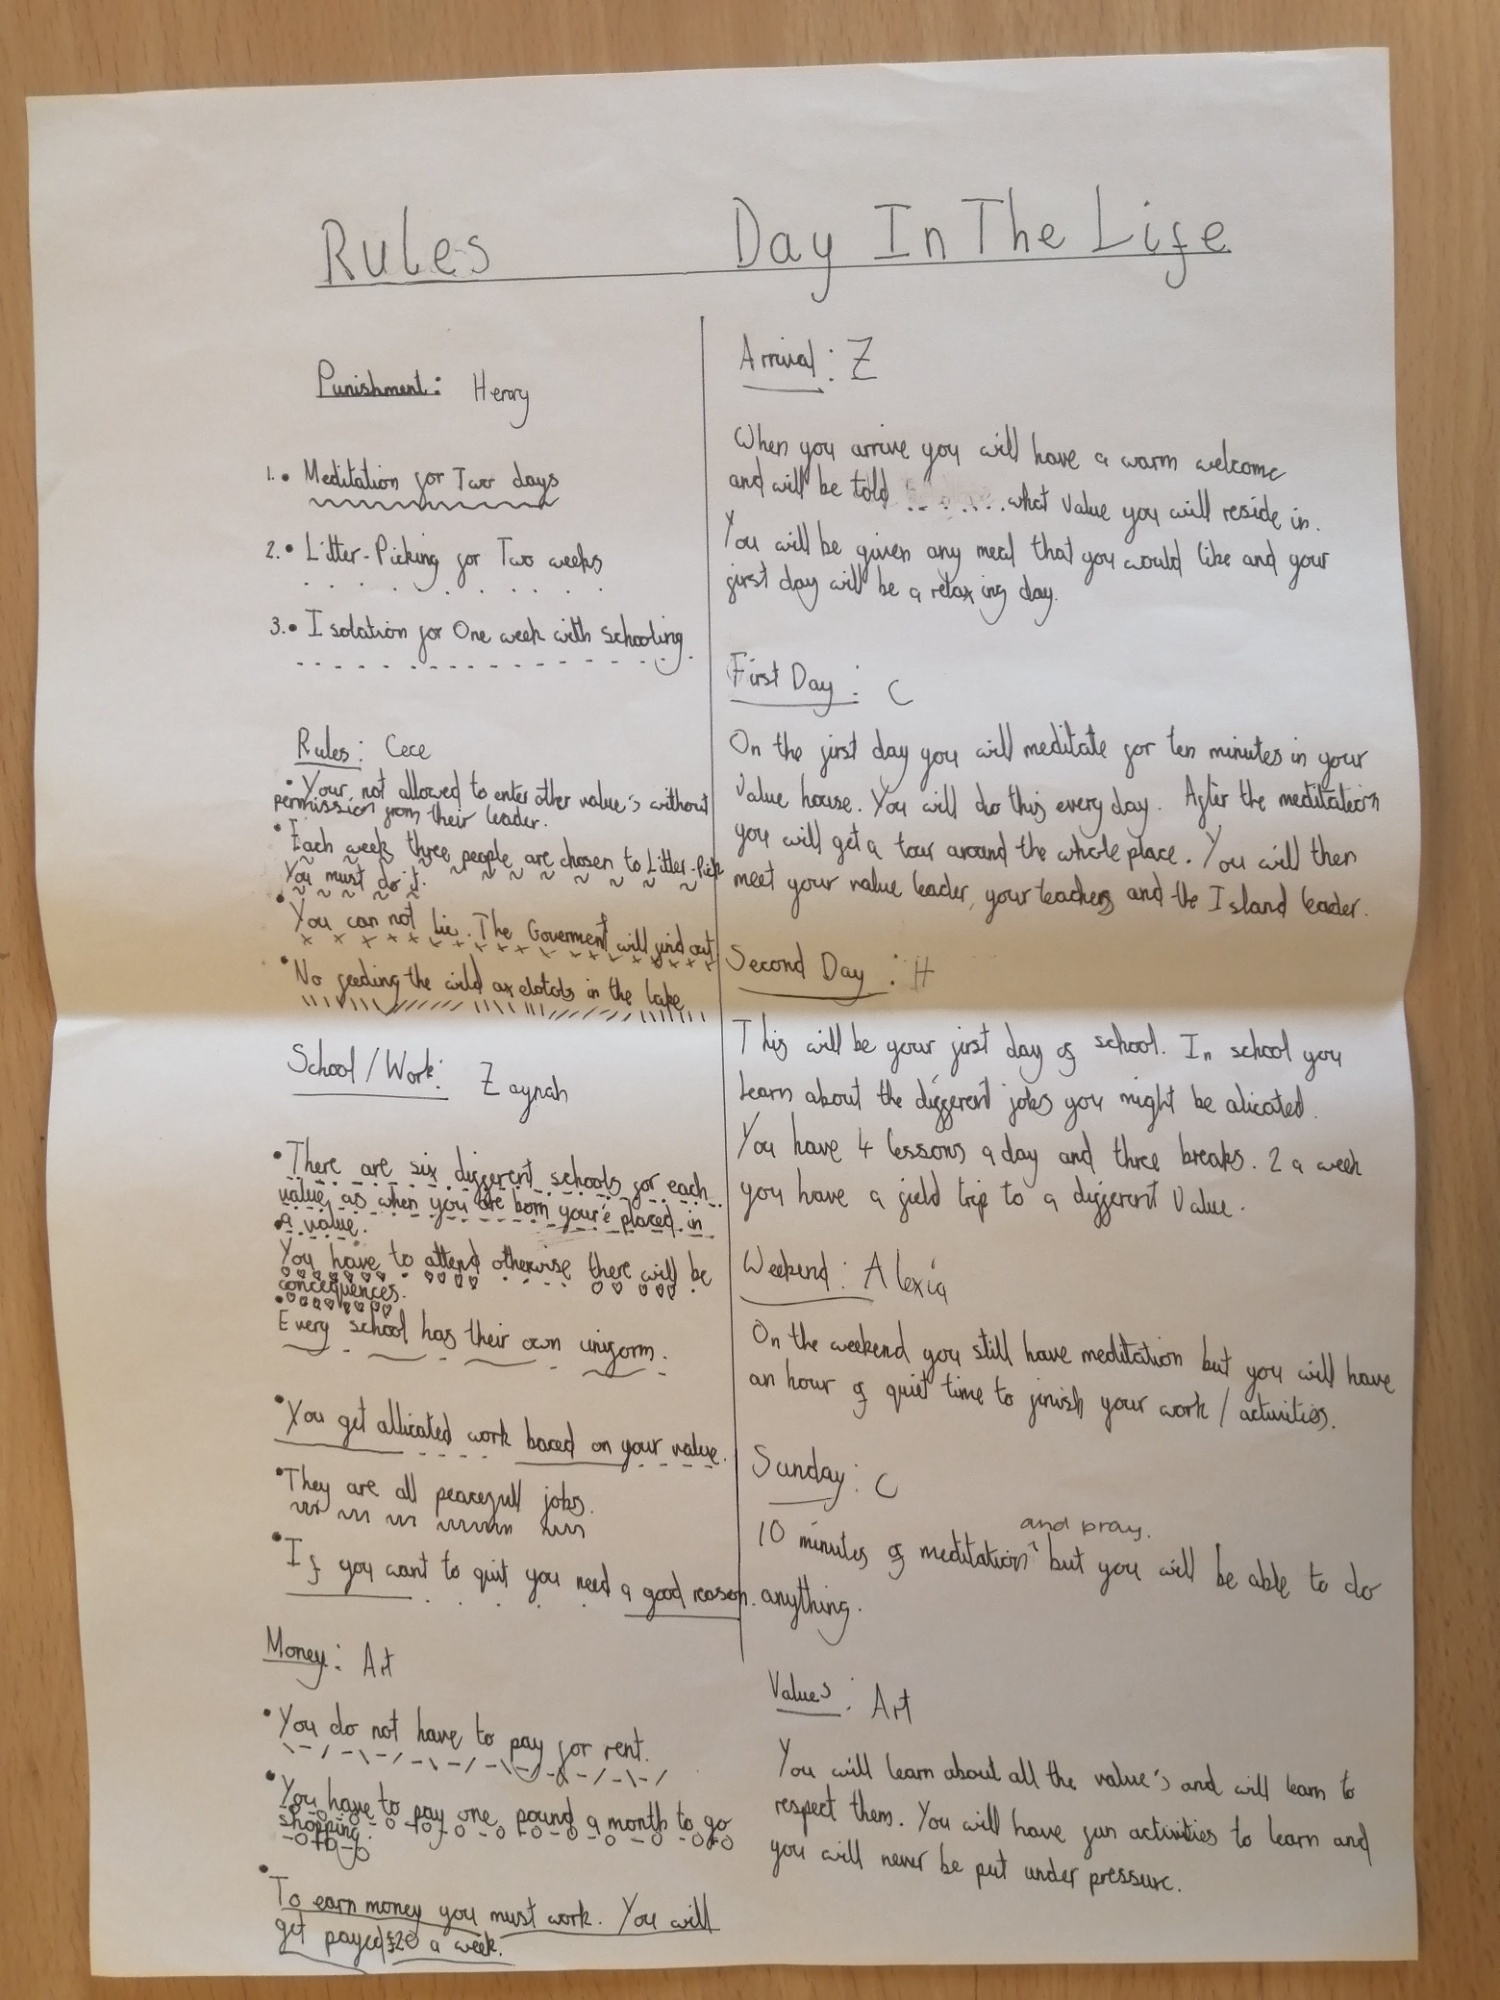 Rules
Punishment: Henry
1. • Meditation for Two days
2. • Litter-Picking for Two weeks
3. • Isolation for One week with schooling.
Rules: Cece
• Your not allowed to enter other value's without
permission from their leader.
• Each week three people are chosen to Litter-Pick
You must do it.
• You can not lie. The Goverment will find out
• No feeding the wild axelotols in the lake
School/Work: Zaynah
• There are six different schools for each
value, as when you are born your'e placed in
a value.
• You have to attend otherwise there will be
concequences.
• Every school has their own uniform.
• You get allicated work baced on your value.
• They are all peacefull jobs.
• If you want to quit you need a good reason.
Money: Art
• You do not have to pay for rent.
• You have to pay one pound a month to go
shopping.
• To earn money you must work. You will
get payed £20 a week.
Day In The Life
Arrival: Z
When you arrive you will have a warm welcome
and will be told what Value you will reside in.
You will be given any meal that you would like and your
first day will be a relaxing day.
First Day: C
On the first day you will meditate for ten minutes in your
Value house. You will do this every day. After the meditation
you will get a tour around the whole place. You will then
meet your value leader, your teachers and the Island leader.
Second Day: H
This will be your first day of school. In school you
learn about the different jobs you might be alicated.
You have 4 lessons a day and three breaks. 2 a week
you have a field trip to a different Value.
Weekend: Alexia
On the weekend you still have meditation but you will have
an hour of quiet time to finish your work / activities.
Sunday: C
10 minutes of meditation and pray. but you will be able to do
anything.
Values: Art
You will learn about all the value's and will learn to
respect them. You will have fun activities to learn and
you will never be put under pressure.